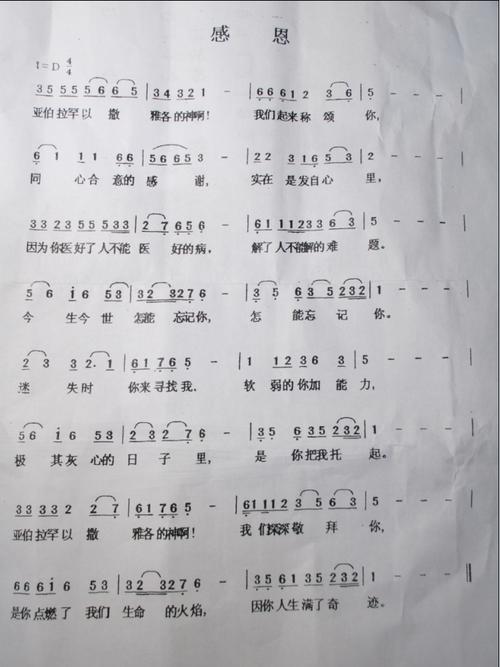 感 恩
1=D 4/4
3 5 5 5 5 6 6 5 | 3 4 3 2 1 - | 6 6 6 1 2 3 6 | 5 - - - |
亚伯拉罕以 撒 雅各的神啊! 我们起来称 颂 你,
6 1 1 1 6 6 | 5 6 6 5 3 - | 2 2 3 1 6 5 3 | 2 - - - |
同 心合 意的 感 谢, 实在 是发自心 里,
3 3 2 3 5 5 5 3 3 | 2 7 6 5 6 - | 6 1 1 1 2 3 3 6 3 | 5 - - - |
因为你医好了人不能 医 好的病。 解了人不能解的难 题。
5 6 i 6 5 3 | 3 2 3 2 7 6 - | 3 5 6 3 5 2 3 2 | 1 - - - |
今 生今 世 怎能 忘记你, 怎 能忘 记 你。
2 3 3 2 · 1 | 6 1 7 6 5 - | 1 1 2 3 6 3 | 5 - - - |
迷 失时 你来寻找我, 软 弱的你加能 力,
5 6 i 6 5 3 | 2 3 2 7 6 - | 3 5 6 3 5 2 3 2 | 1 - - - |
极 其灰 心的 日 子 里, 是 你把我托 起。
3 3 3 3 2 2 | 6 1 7 6 5 - | 6 1 1 1 2 3 5 6 3 | 5 - - - |
亚伯拉罕以 撒 雅各的神啊! 我 们深深敬 拜 你,
6 6 6 i 6 5 3 | 3 2 3 2 7 6 - | 3 5 6 1 3 5 2 3 2 | 1 - - - ‖
是你点燃了 我们 生命 的火焰, 因你人生满了奇 迹。